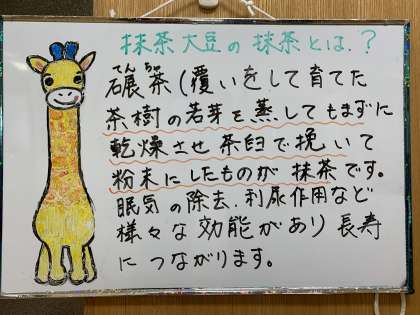 抹茶大豆の抹茶とは?
てんちゃ
碾茶(覆いをして育てた
茶樹の若芽を蒸してもまずに
乾燥させ茶臼で挽いて
粉末にしたものが抹茶です。
眠気の除去、利尿作用など
様々な効能があり長寿
につながります。